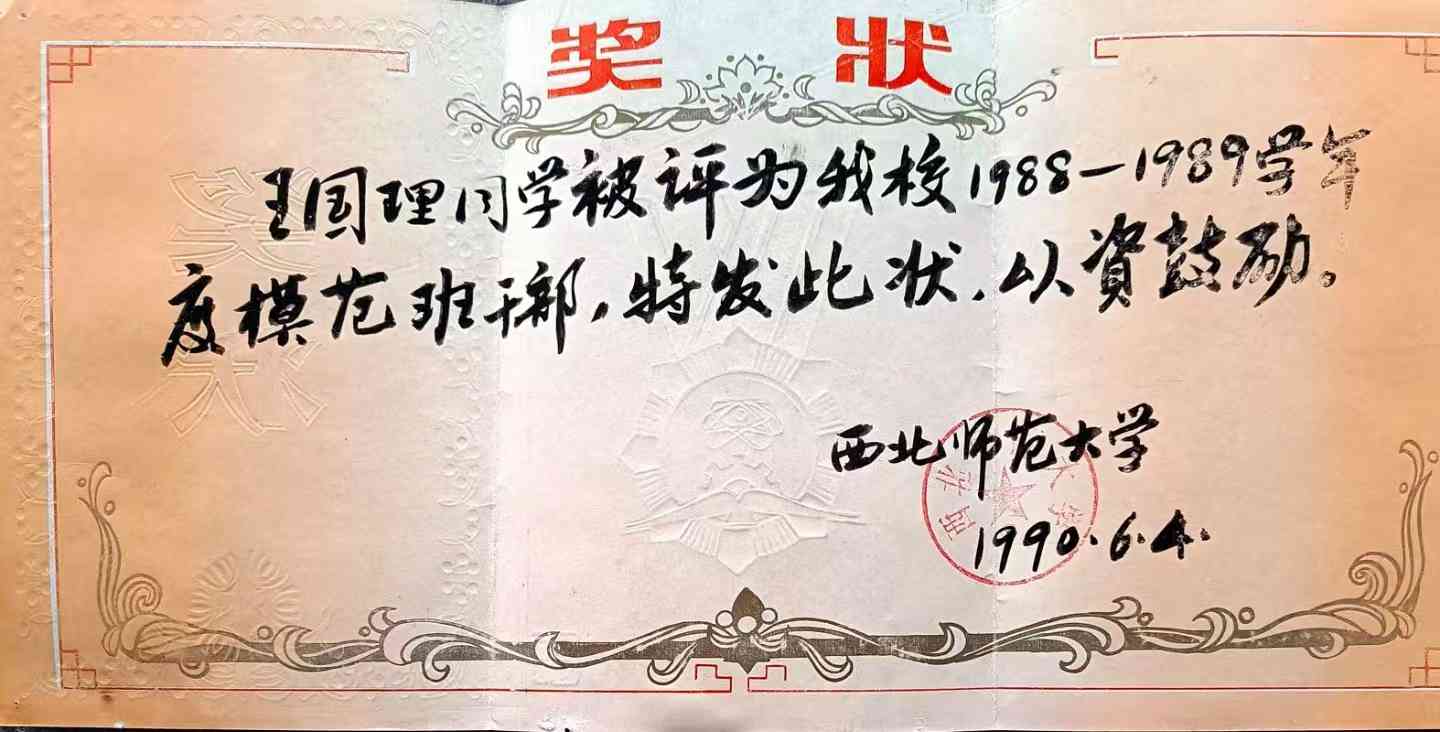 奖状
王国理同学被评为我校1988-1989学年
度模范班干部,特发此状,以資鼓励。
西北师范大学
1990.6.4.